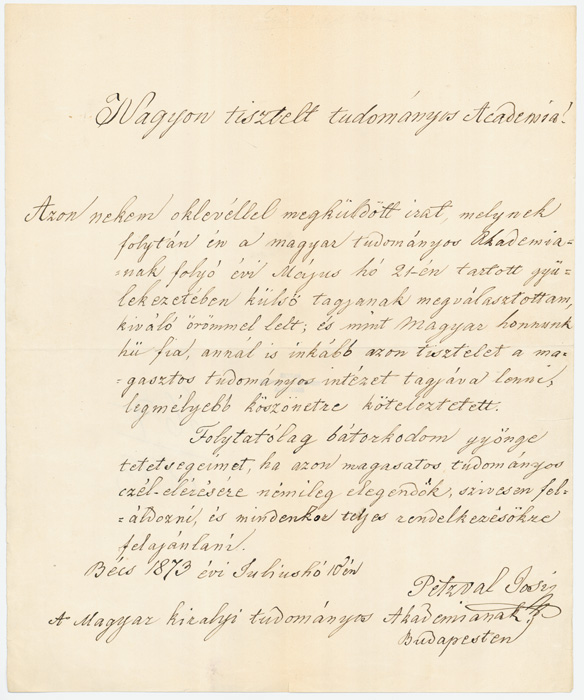 Nagyon tisztelt tudományos Academia!
Azon nekem oklevéllel megküldött irat, melynek
folytán én a magyar tudományos Akademia-
-nak folyó évi Május hó 21-én tartott gyü-
lekezetében külső tagjanak megválasztottam,
kiváló örömmel lelt; és mint Magyar honnunk
hű fia, annál is inkább azon tisztelet a ma-
-gasztos tudományos intézet tagjáva lenni,
legmélyebb köszönetre köteleztetett.
Folytatólag bátorkodom gyönge
tetetségeimet, ha azon magasatos tudományos
czél-elérésére némileg elegendők, szivesen fel-
-áldozni, és mindenkor teljes rendelkezésökre
felajánlani.
Bécs 1873 évi Juliushó 10én
Petzval
A Magyar kiralyi tudományos Akademiának
Budapesten